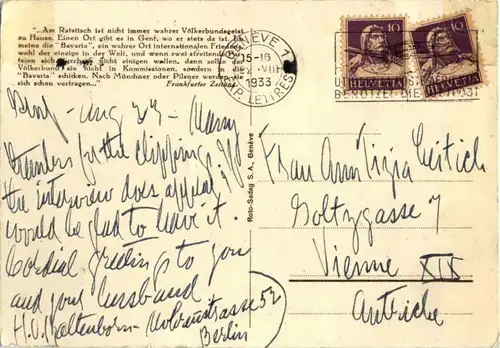 "Am Ratstisch ist nicht immer wahrer Völkerbundsgeist
zu Hause. Einen Ort gibt es in Genf, wo er stets da ist. Ich
meine die "Bavaria", ein wahrer Ort internationalen Friedens,
wohl der einzige in der Welt, und wenn zwei streitende
sich nicht einigen wollen, dann solle der
Völkerbund sie nicht in Kommissionen, sondern in die
"Bavaria" schicken. Nach Münchner oder Pilsner werden sie
sich schon vertragen..." Frankfurter Zeitung
GENÈVE 1
15-16
22.VIII
1933
EXP. LETTRES
10 10
HELVETIA HELVETIA
BENÜTZET DIE
Roto-Sadag S. A., Genève
Aug 22 - Many
thanks for the clipping. If
the interview does appeal
would be glad to have it.
Cordial greetings to you
and your husband
H.V. Kaltenborn - 52
Berlin
Frau Ann Tizia Leitich
Goltzgasse 7
Vienne XIX
Autriche